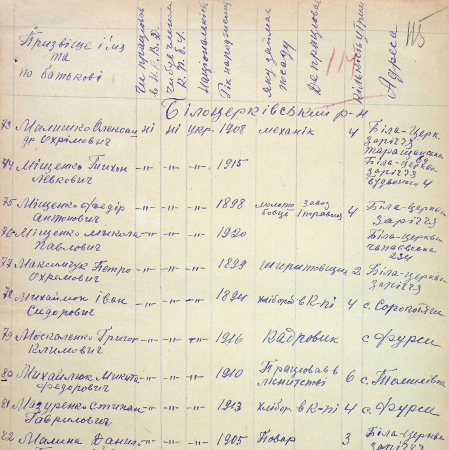 115
Призвіще ім'я та по батькові
Чи працював в Н.К.В.Д.
Національність
Рік народження
Яку займає посаду
Де працював
Адреса
Білоцерківський р-н
73 Малишко Олександр Охрімович ні ні укр. 1908 механік 4 Біла-Церк. заріччя
74 Міщенко Тихон Левкович -"- -"- -"- 1915 Біла-Церква заріччя
75 Міщенко Федір Антонович -"- -"- -"- 1898 молотобоєць завод 1 травня 4 Біла-Церква заріччя
76 Міщенко Микола Павлович -"- -"- -"- 1920 Біла-Церква чапаєвська 234
77 Максимчук Петро Охрімович -"- -"- -"- 1899 2 Біла-Церква заріччя
78 Михайлюк Іван Сидорович -"- -"- -"- 1894 хлібороб в К-пі 4 с.
79 Москаленко Григор Климович -"- -"- -"- 1916 Кадровик с Фурси
80 Михайлюк Микита Федорович -"- -"- -"- 1910 Працював в лісництві 6 с. Томилівка
81 Мазуренко Степан Гаврилович -"- -"- -"- 1913 хлібор. в К-пі 4 с. Фурси
82 Малина Данил -"- -"- -"- 1905 Повар 3 Біла-Церк заріччя